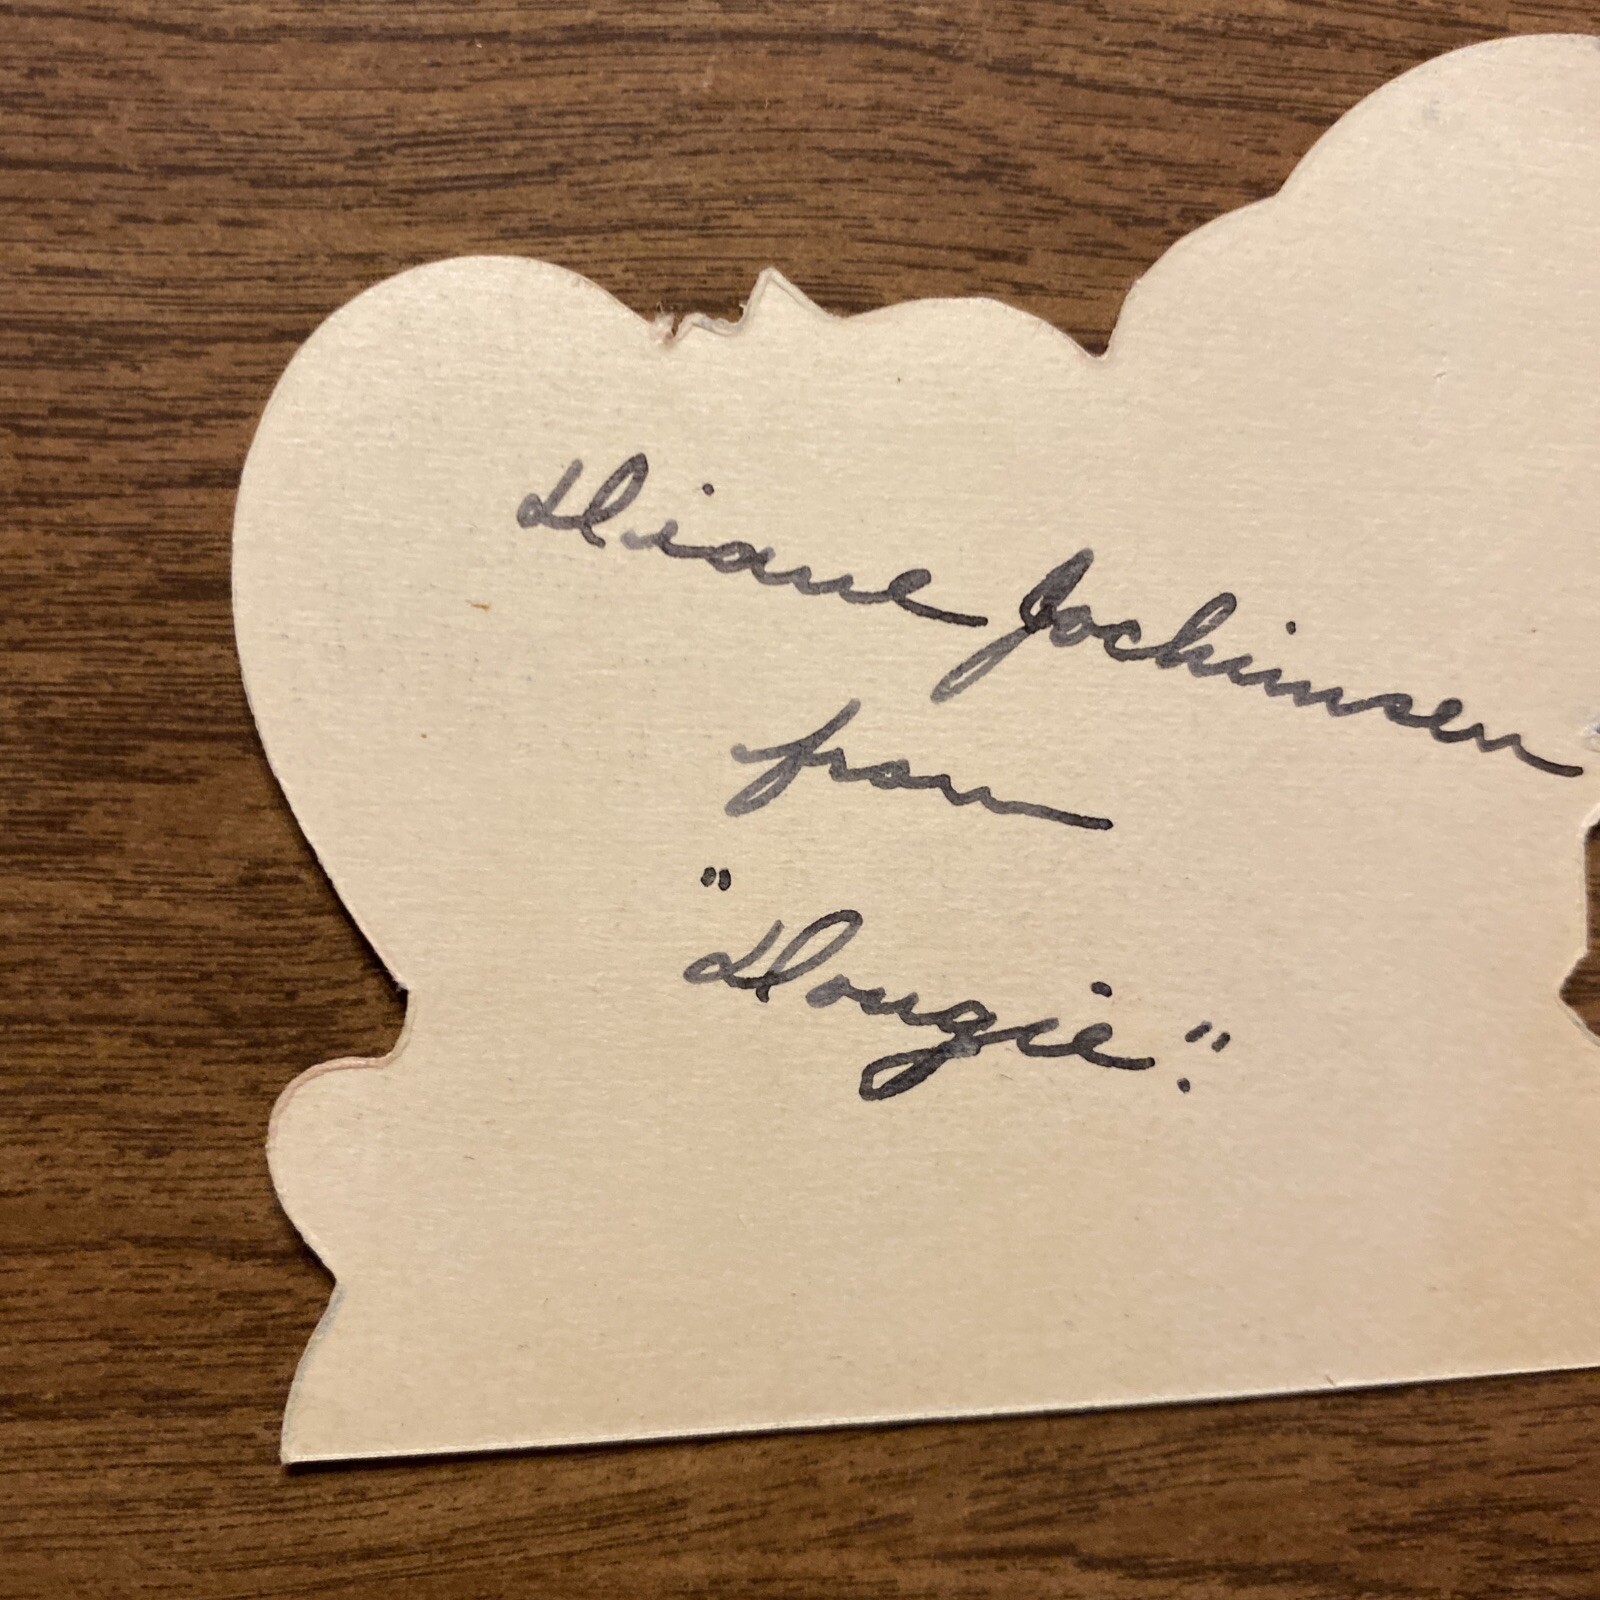 Diane Jochimsen
from
"Dougie."